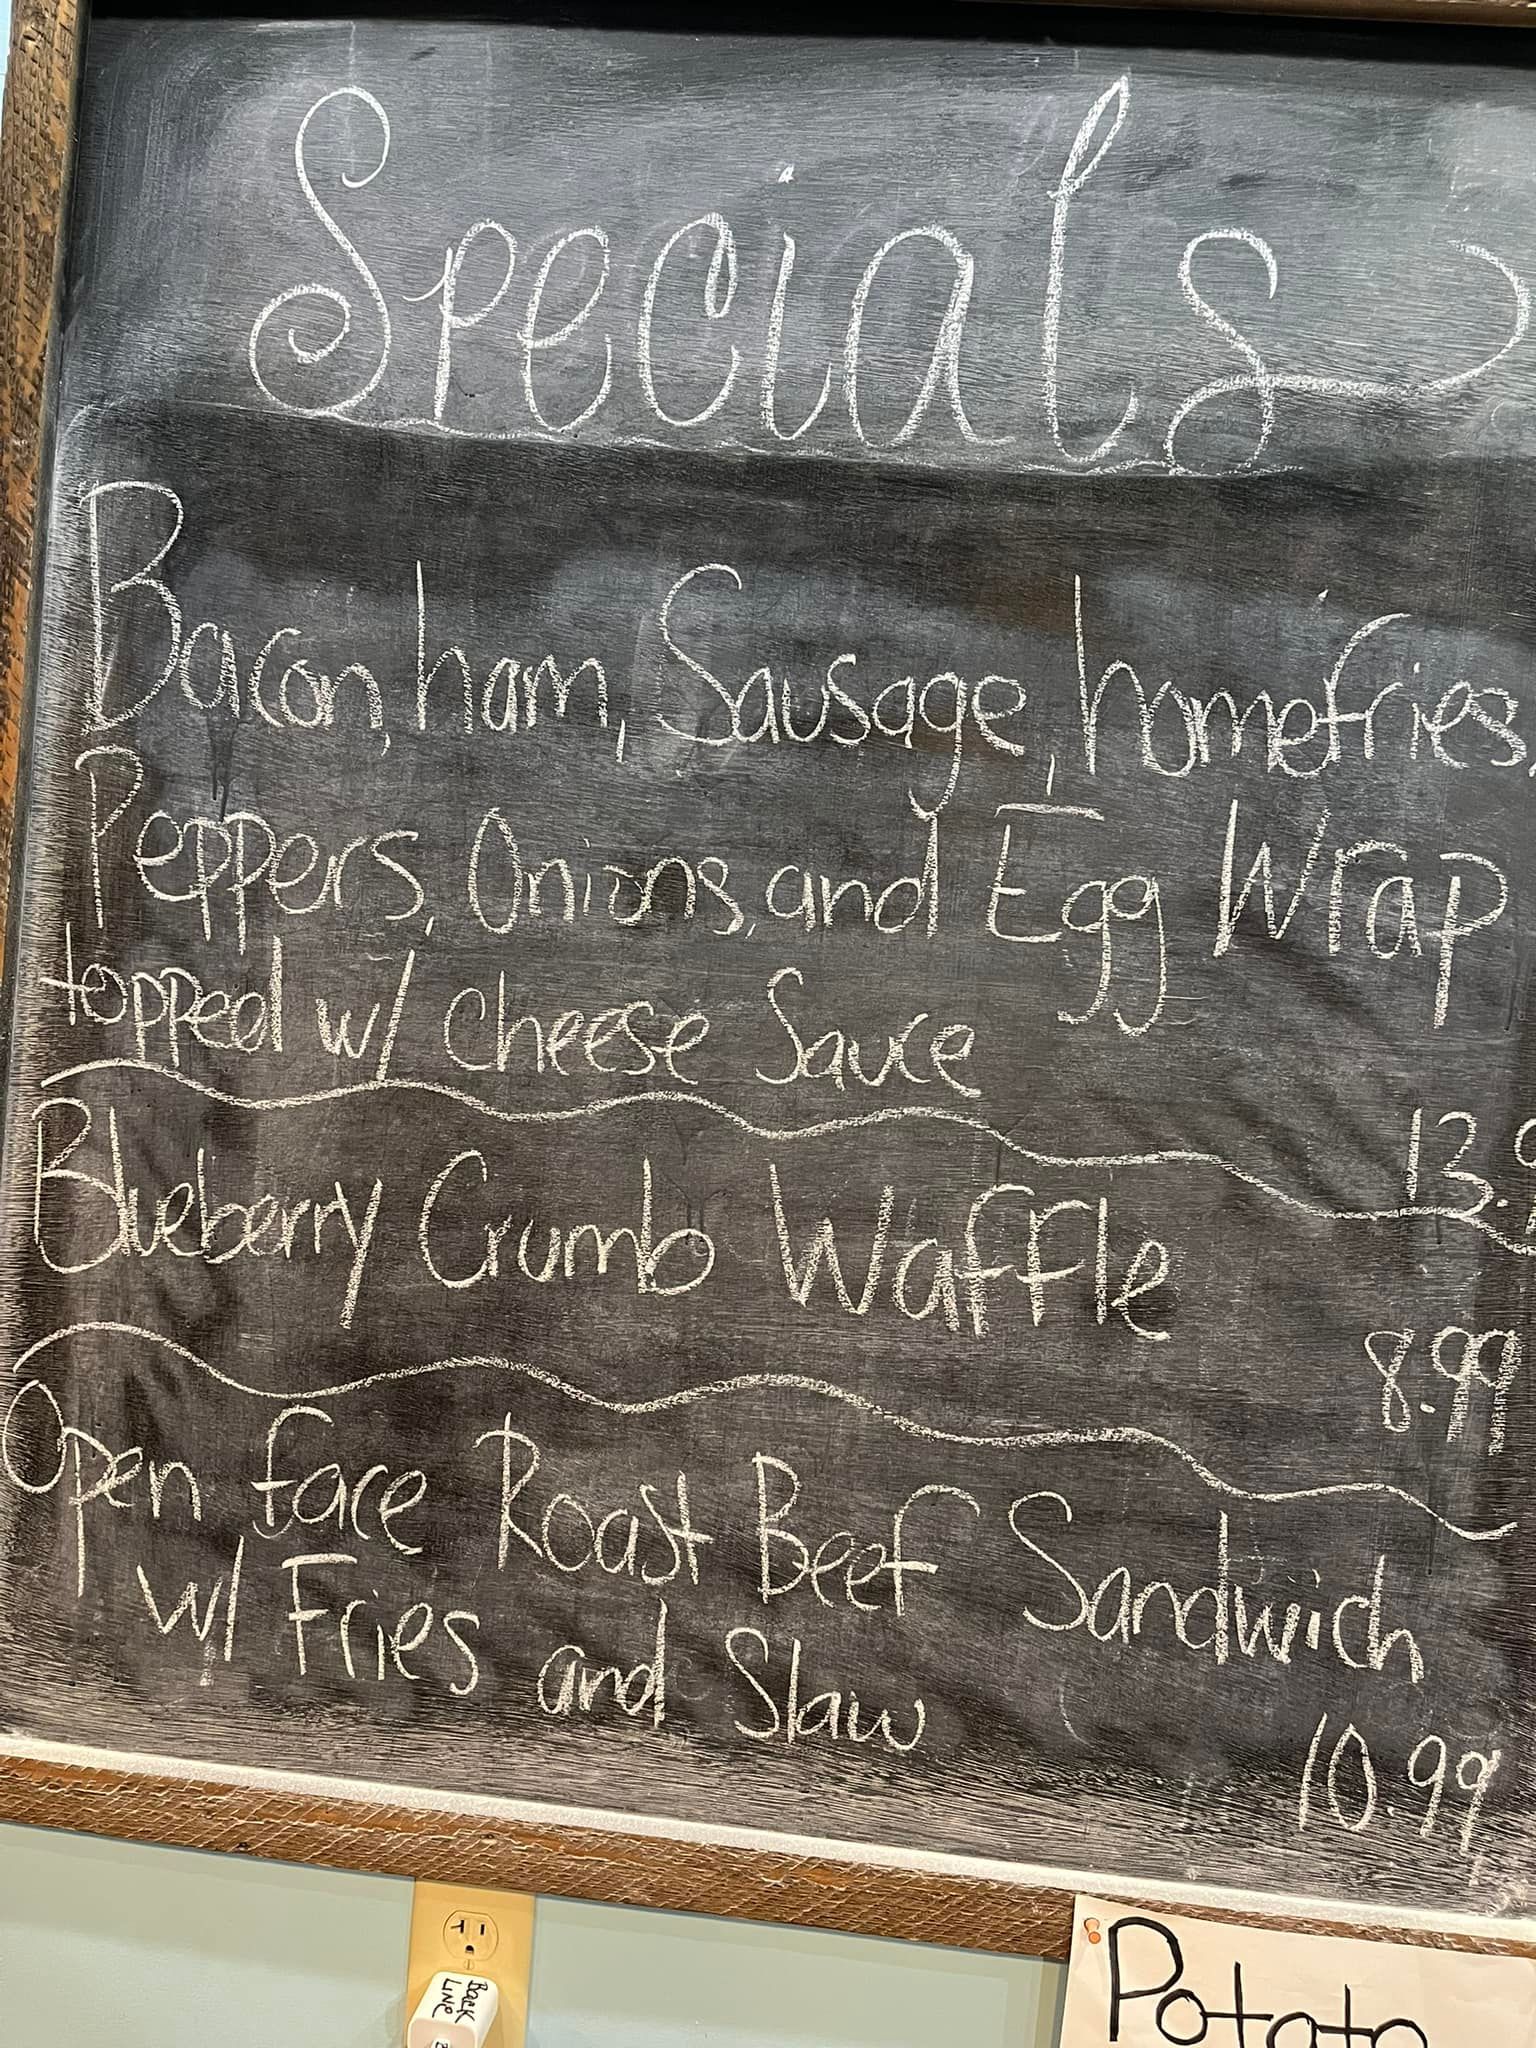 Specials
Bacon, ham, Sausage, homefries,
Peppers, Onions, and Egg Wrap
topped w/ Cheese Sauce
13.9
Blueberry Crumb Waffle
8.99
Open face Roast Beef Sandwich
w/ Fries and Slaw
10.99
BACK
LINE
Potato